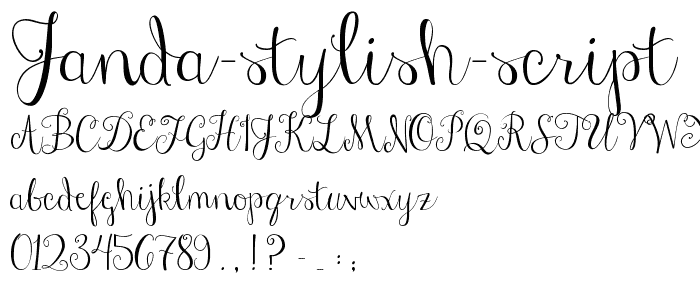 Janda-stylish-script
ABCDEFGHIJKLMNOPQRSTUVW
abcdefghijklmnopqrstuvwxyz
0123456789 . , ! ? - _ : ;